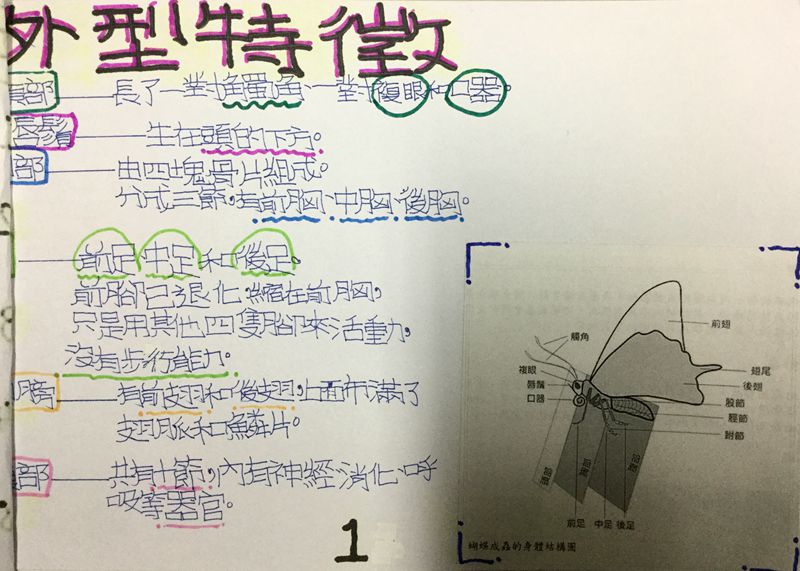 外型特徵
部 長了一對觸角、一對複眼和口器。
唇鬚 生在頭的下方。
部 由四塊骨片組成。
分成三節,有前胸、中胸、後胸。
前足、中足和後足。
前腳已退化,縮在前胸,
只是用其他四隻腳來活動,
沒有步行能力。
有前翅和後翅,上面布滿了
翅脈和鱗片。
部 共有十節,內有神經、消化、呼
吸等器官。
1
前翅
觸角
複眼
唇鬚
口器
翅尾
後翅
股節
脛節
跗節
頭部
胸部
腹部
前足 中足 後足
蝴蝶成蟲的身體結構圖